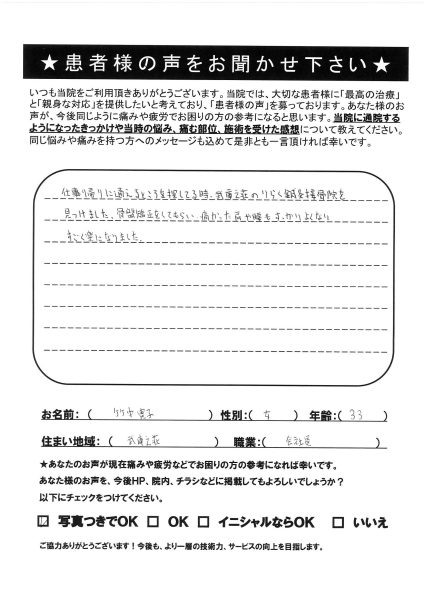 ★患者様の声をお聞かせ下さい★
いつも当院をご利用頂きありがとうございます。当院では、大切な患者様に「最高の治療」
と「親身な対応」を提供したいと考えており、「患者様の声」を募っております。あなた様のお
声が、今後同じように痛みや疲労でお困りの方の参考になると思います。当院に通院する
ようになったきっかけや当時の悩み、痛む部位、施術を受けた感想について教えてください。
同じ悩みや痛みを持つ方へのメッセージも込めて是非とも一言頂ければ幸いです。
仕事帰りに通えるところを探してる時、武庫之荘のりらく鍼灸接骨院を
見つけました。骨盤矯正をしてもらい、痛かった肩や腰もすっかりよくなり
すごく楽になりました。
お名前:( ) 性別:( 女 ) 年齢:( 33 )
住まい地域:( 武庫之荘 ) 職業:( 会社員 )
★あなたのお声が現在痛みや疲労などでお困りの方の参考になれば幸いです。
あなた様のお声を、今後HP、院内、チラシなどに掲載してもよろしいでしょうか?
以下にチェックをつけてください。
☑ 写真つきでOK □ OK □ イニシャルならOK □ いいえ
ご協力ありがとうございます!今後も、より一層の技術力、サービスの向上を目指します。